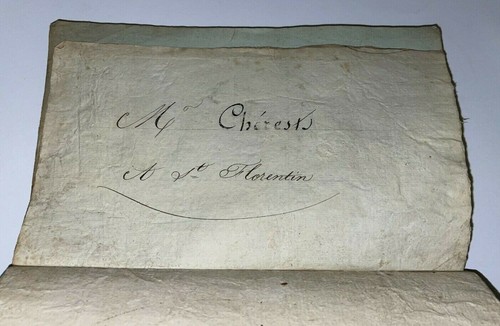 Mr Chérest
A St Florentin